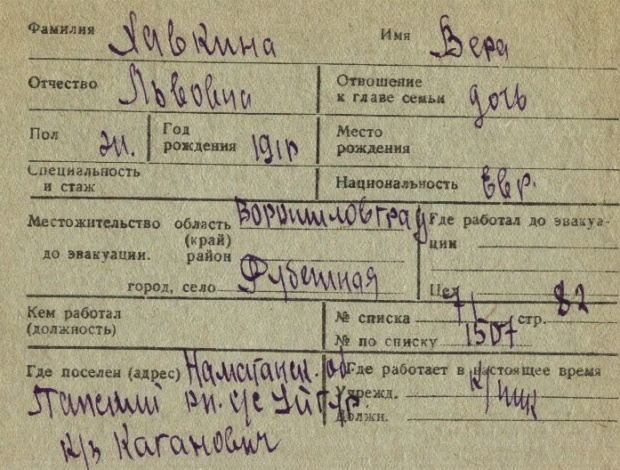 Фамилия Хавкина Имя Вера
Отчество Львовна Отношение к главе семьи дочь
Пол ж. Год рождения 191 Место рождения
Специальность и стаж Национальность Евр.
Местожительство область Ворошиловград Где работал до эвакуа-
(край) ции
до эвакуации. район
город, село Рубежная
Кем работал № списка 71 стр. 82
(должность) № по списку 1507
Где поселен (адрес) Наманганск. об Где работает в настоящее время
Папский рн. с/с Уйгур Учрежд.
к/з Каганович Должн.